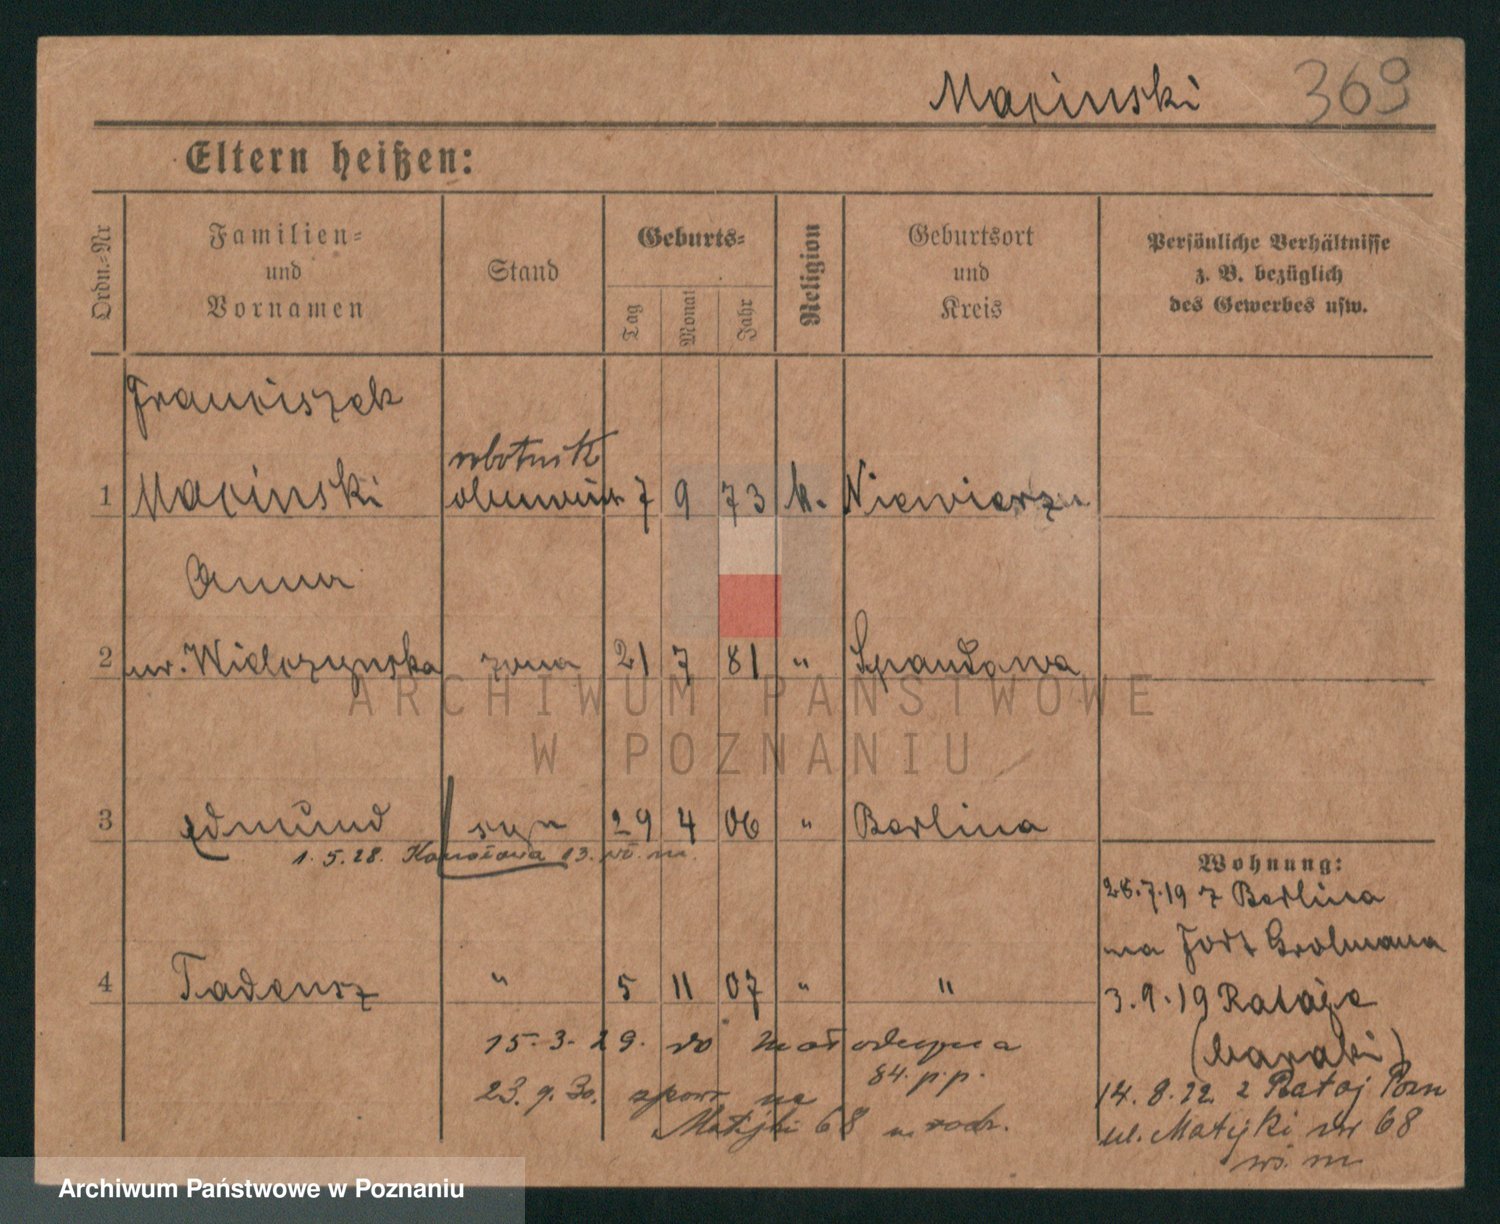 Macinski 369
Eltern heißen:
Ordn.-Nr
Familien-
und
Vornamen
Stand
Geburts-
Tag
Monat
Jahr
Religion
Geburtsort
und
Kreis
Persönliche Verhältnisse
z. B. bezüglich
des Gewerbes usw.
Franciszek
robotnik
1 Macinski 7 9 73 k. Niewierz
Anna
2 ur. Wielczynska żona 21 7 81 " Szpandawa
3 Edmund syn 29 4 06 " Berlina
1.5.28. 13. m.
Wohnung:
28.7.19 z Berlina
na Fort Grolmana
4 Tadeusz " 5 11 07 " "
3.9.19 Rataje
(baraki)
15.3.29. do Małodeczna
84. p.p.
23.9.30. spowr. na
Matejki 68 u rodz.
14.8.22. z Rataj Pozn
ul. Matejki nr 68
ARCHIWUM PAŃSTWOWE
W POZNANIU
Archiwum Państwowe w Poznaniu